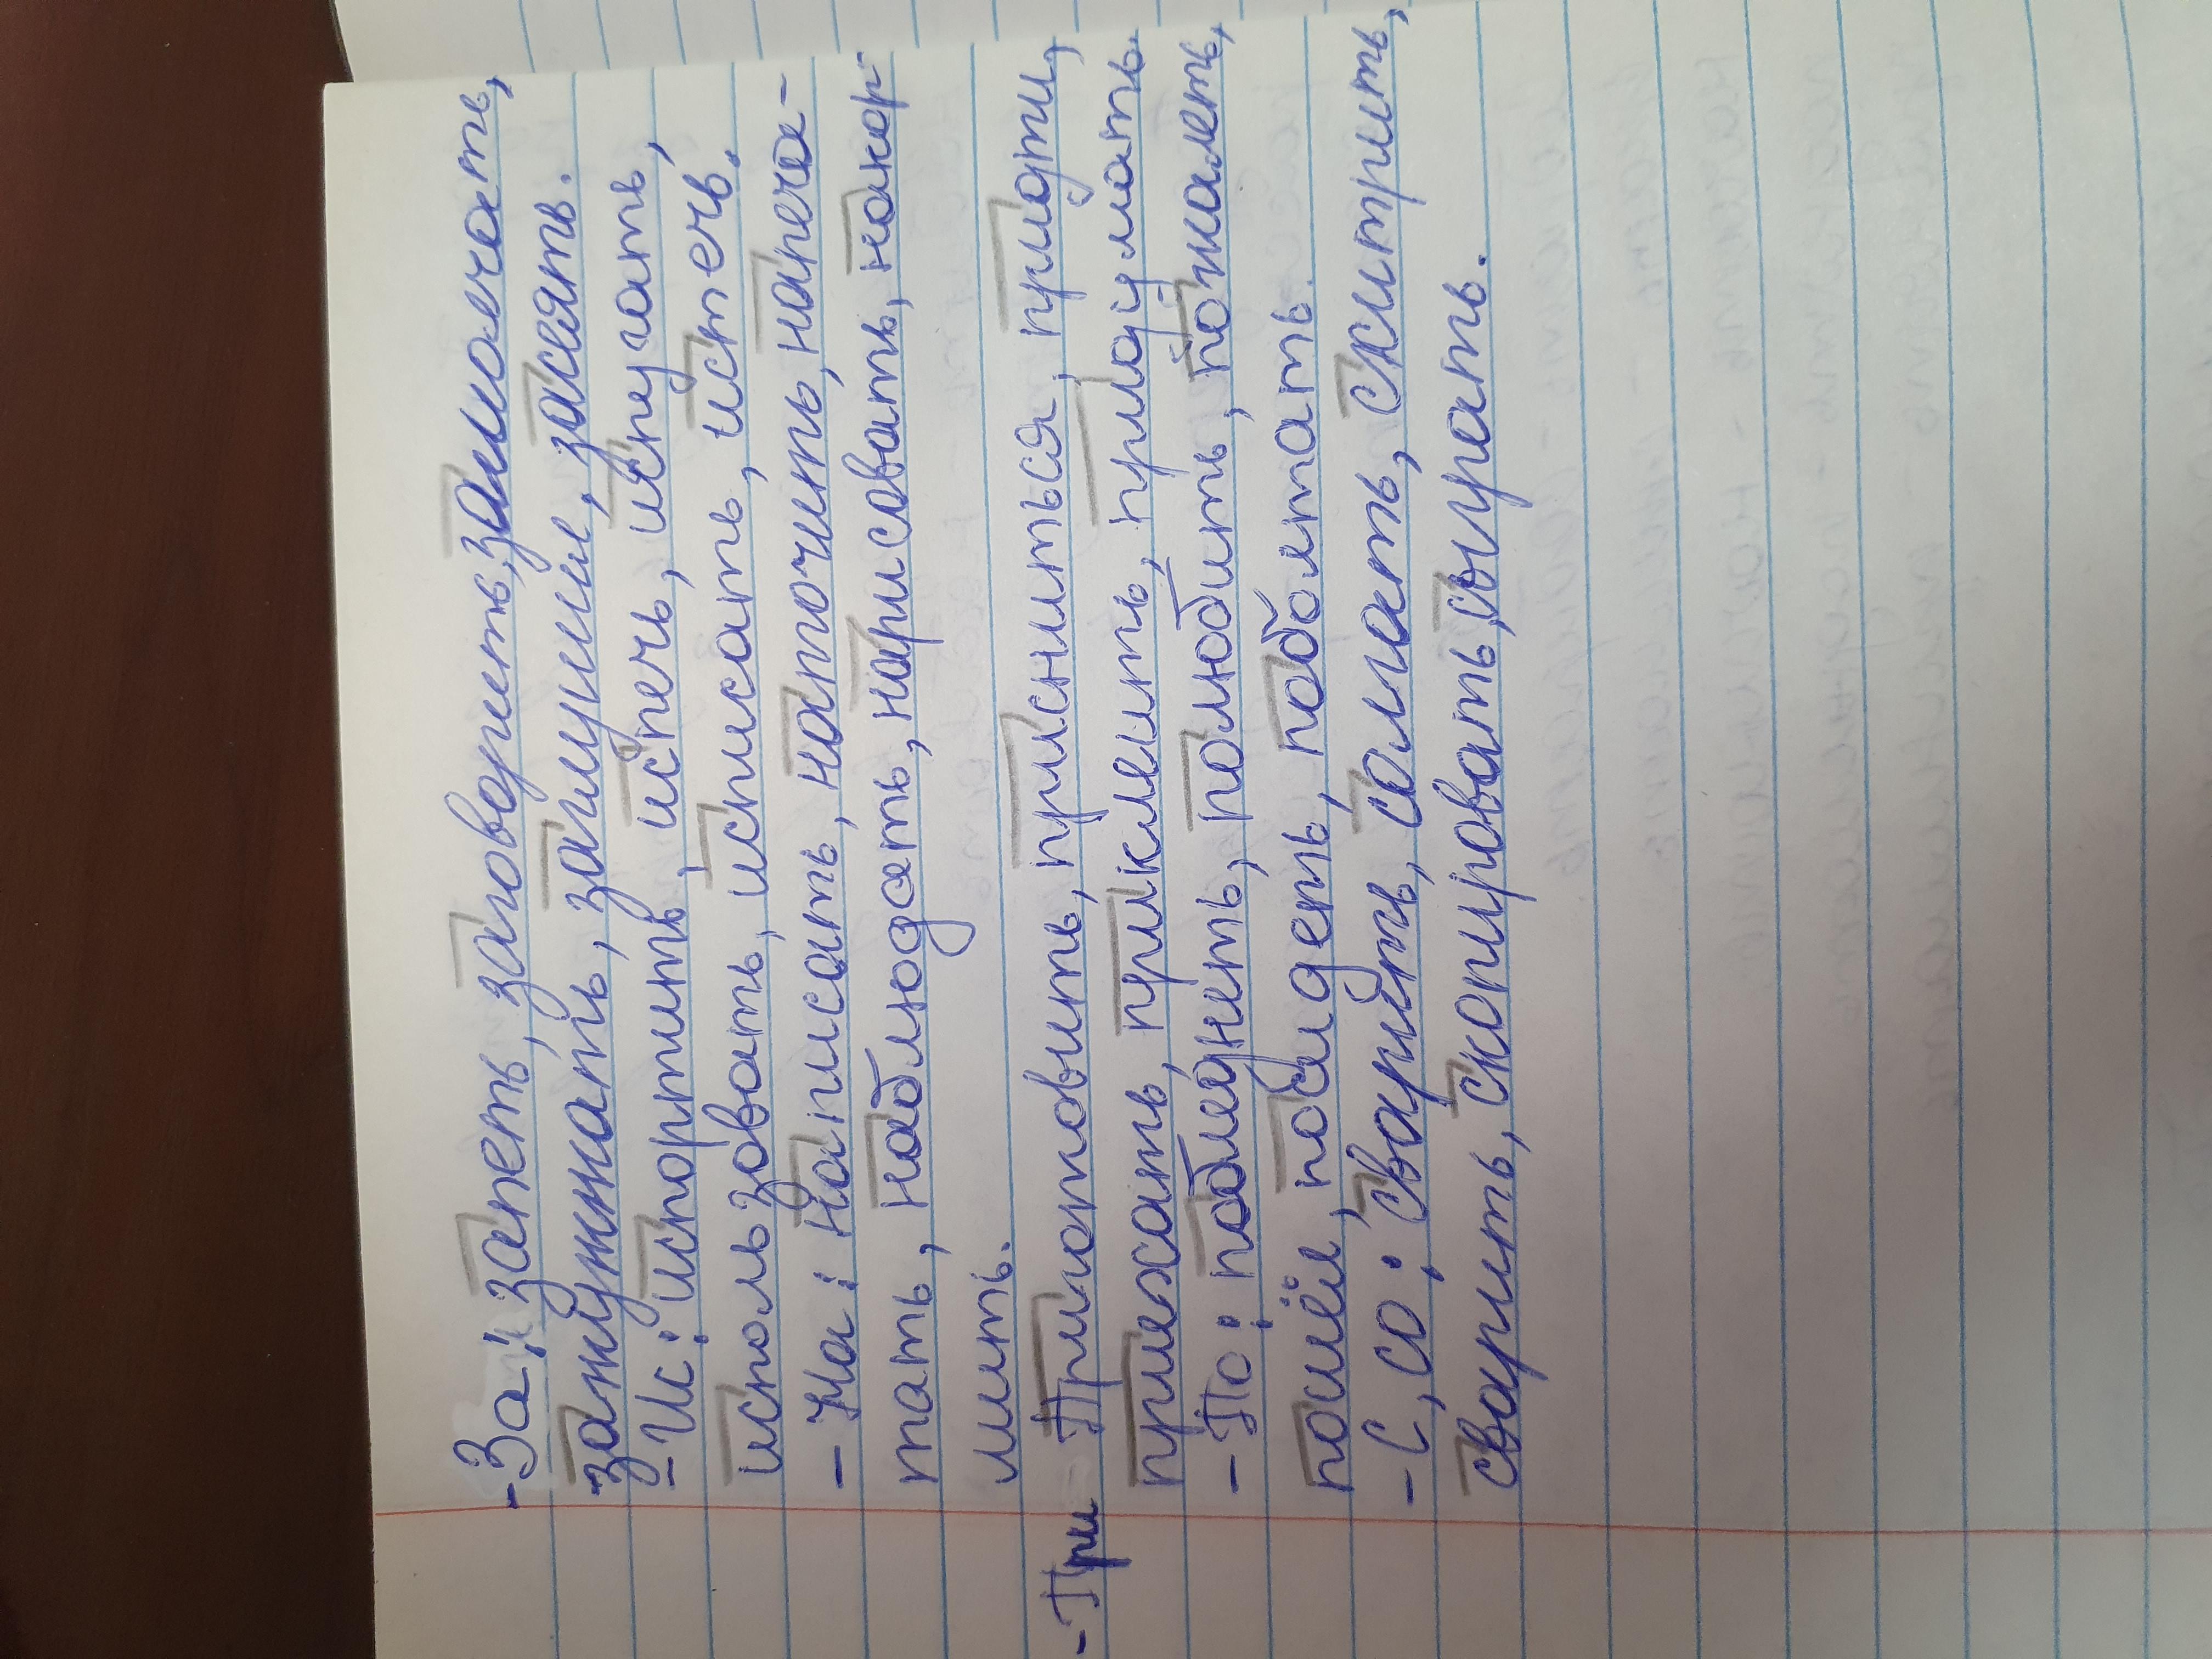 -За: запеть, заговорить, замолчать,
зажужжать, заглушил, засеять.
-Ис: испортить, испечь, испугать,
использовать, исписать, истечь.
-На: написать, наточить, напеча-
тать, наблюдать, нарисовать, накор-
мить.
-При Приготовить, присниться, прийти,
приехать, приклеить, придумать.
-По: побледнеть, полюбить, пожалеть,
пошёл, поглядеть, поболтать.
-С, со: сварить, солгать, схитрить,
сварить, скопировать, сыграть.